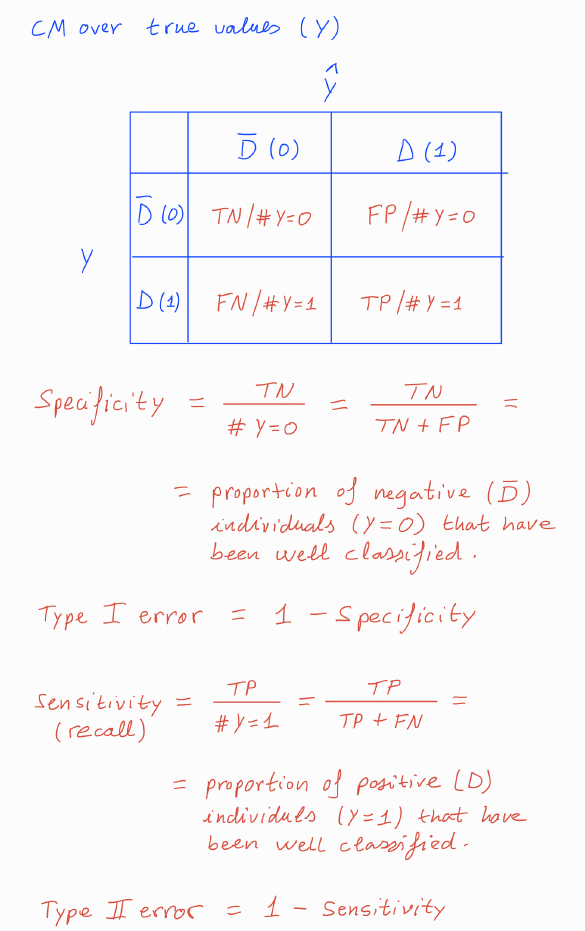 CM over true values (Y)
Ŷ
D̅ (0) D (1)
D̅ (0) TN/# Y=0 FP/# Y=0
Y
D (1) FN/# Y=1 TP/# Y=1
Specificity = TN / # Y=0 = TN / TN + FP =
= proportion of negative (D̅)
individuals (Y=0) that have
been well classified.
Type I error = 1 - Specificity
Sensitivity = TP / # Y=1 = TP / TP + FN =
(recall)
= proportion of positive (D)
individuls (Y=1) that have
been well classified.
Type II error = 1 - Sensitivity